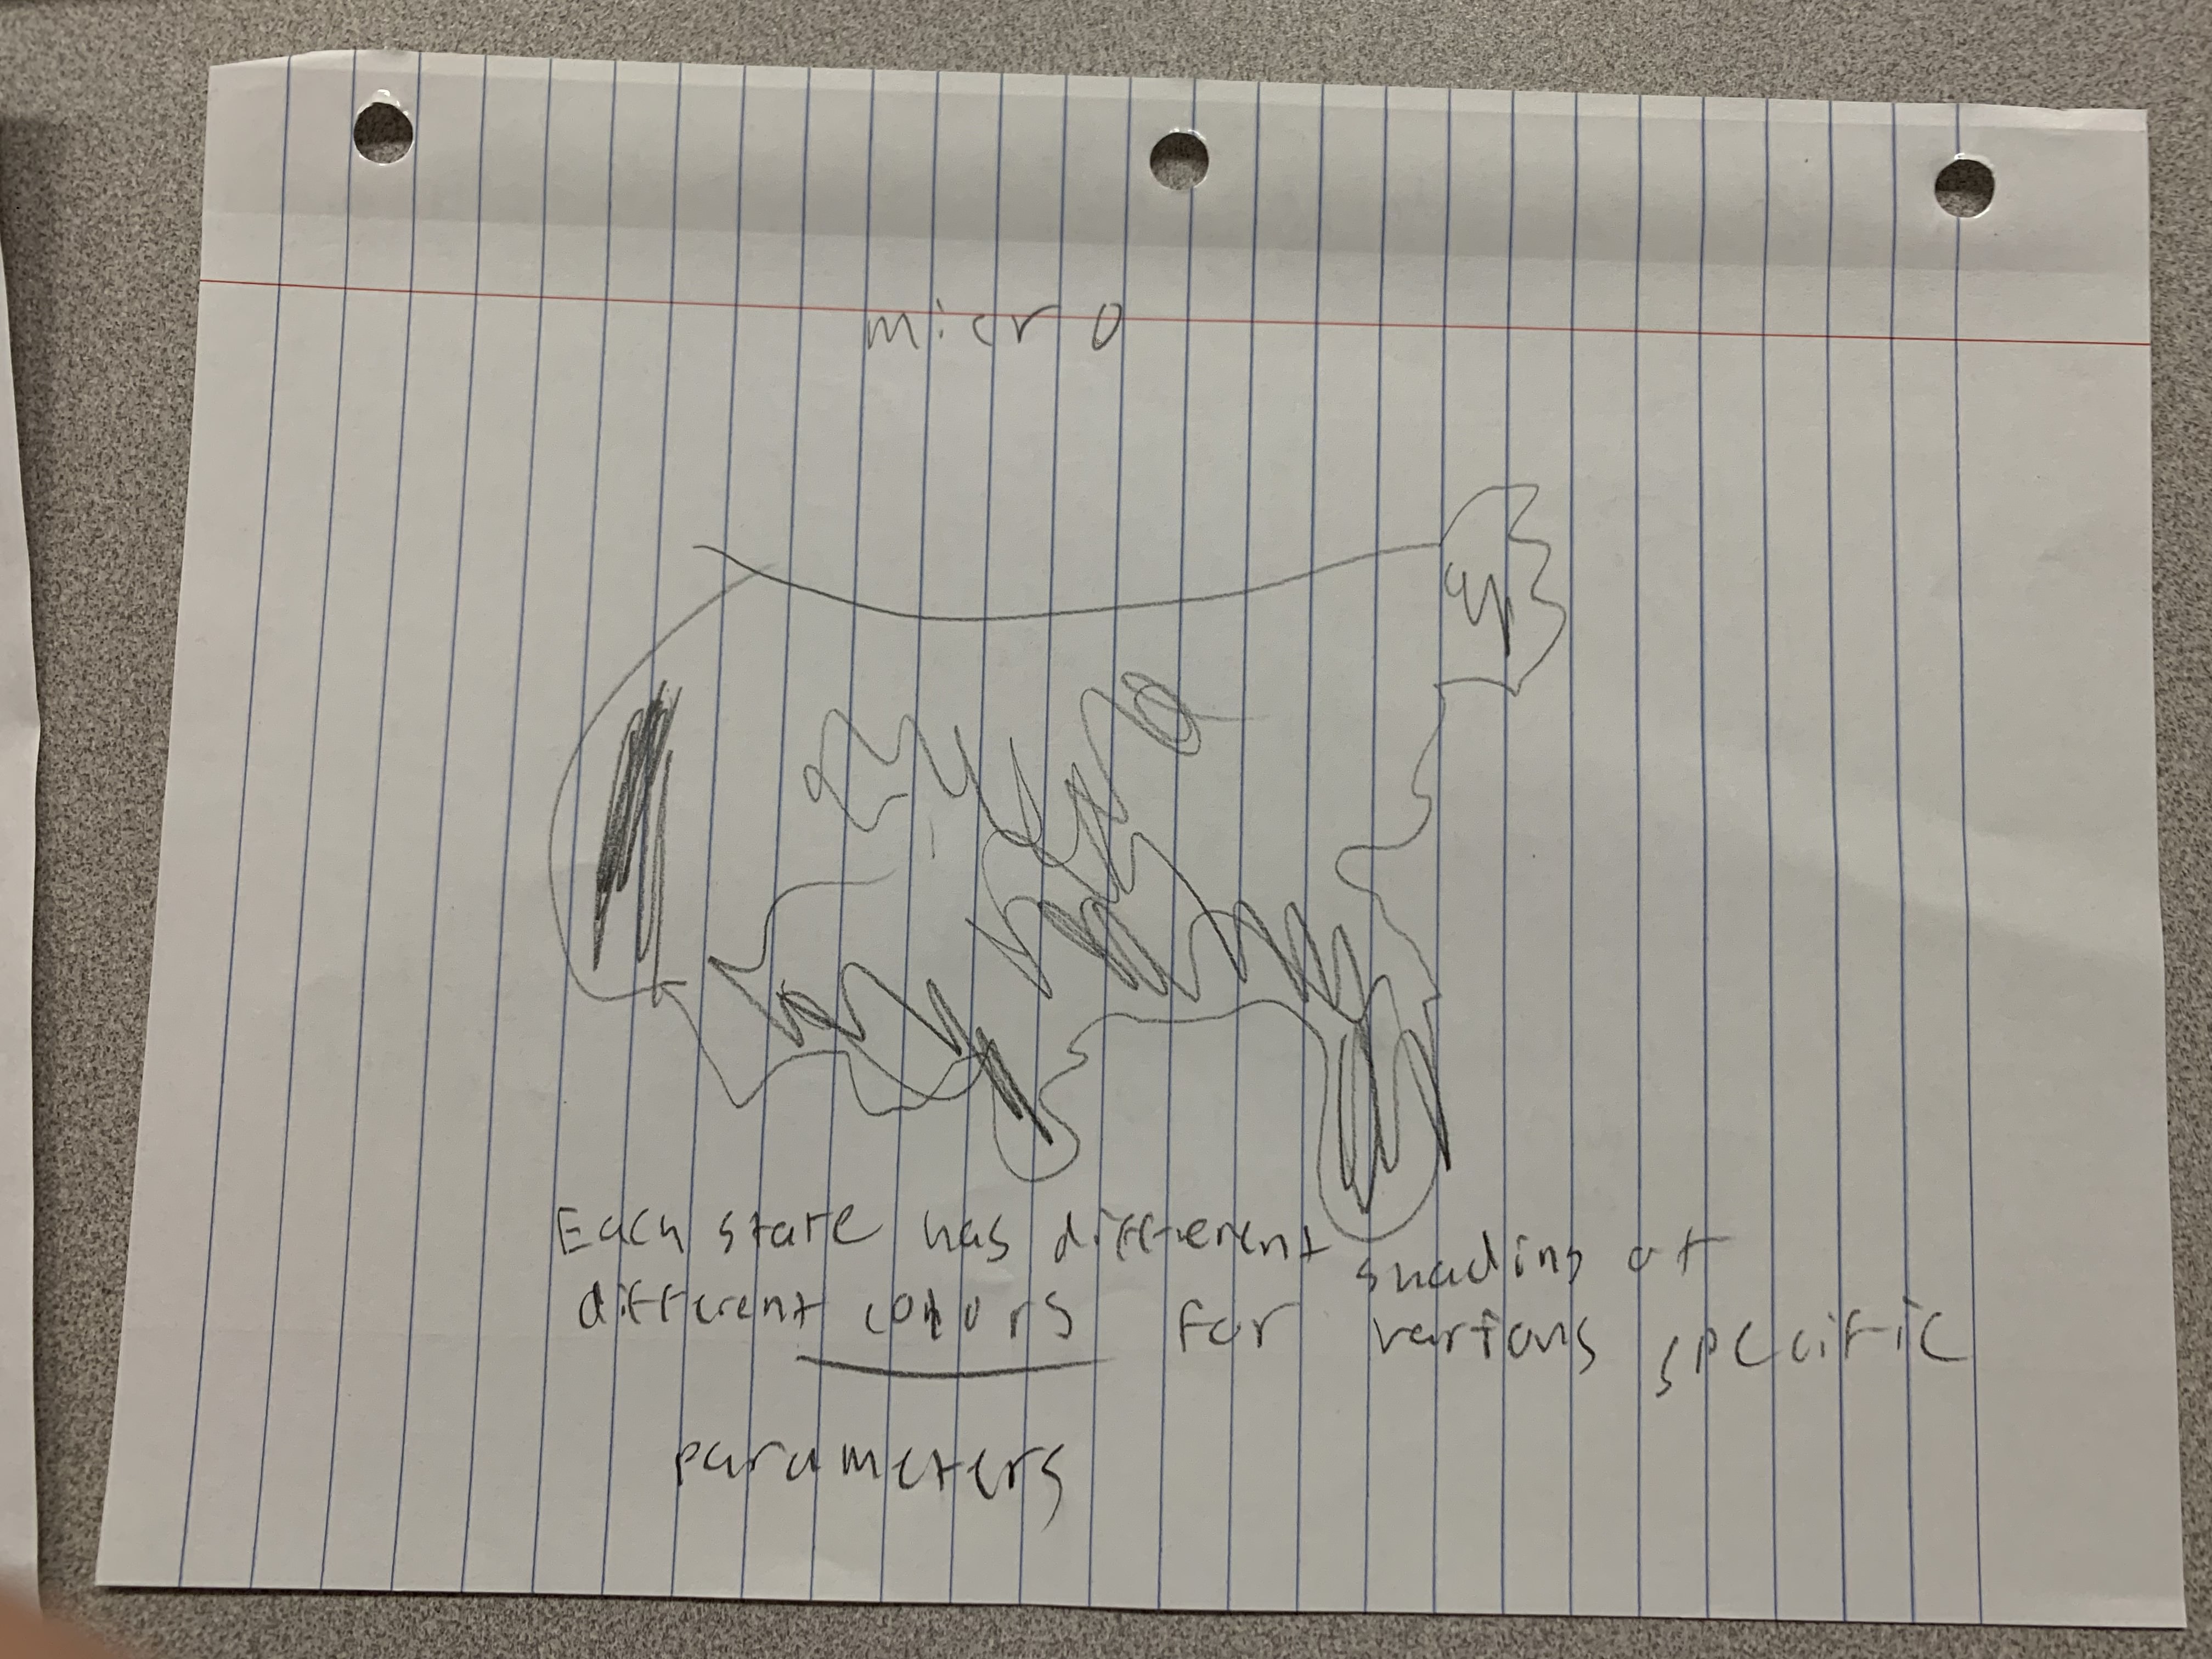 Micro
Each state has different shading of
different colors for various specific
parameters